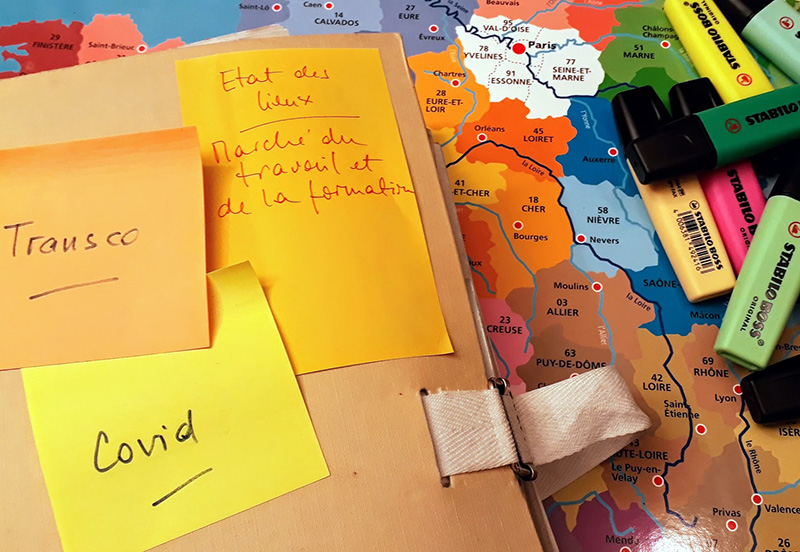 Etat des
lieux
Marché du
travail et
de la formation
Transco
Covid
29
FINISTÈRE
Saint-Brieuc
Saint-Lô
Caen
14
CALVADOS
27
EURE
Évreux
la Seine
Beauvais
95
VAL-D'OISE
Paris
78
YVELINES
91
ESSONNE
77
SEINE-ET-
MARNE
Châlons-
Champagne
51
MARNE
Chartres
28
EURE-ET-
LOIR
Orléans
45
LOIRET
la Loire
l'Yonne
Auxerre
41
ET-CHER
18
CHER
Bourges
58
NIÈVRE
Nevers
Moulins
la Loire
SAÔNE-
Mâcon
03
ALLIER
l'Allier
23
CREUSE
63
PUY-DE-DÔME
42
LOIRE
69
RHÔNE
Lyon
Saint-
Étienne
43
HAUTE-LOIRE
Le Puy-en-
Velay
le Rhône
Valence
Privas
26
Mende
07
ISÈR
STABILO BOSS
ORIGINAL
STABILO
STABILO BOSS
ORIGINAL
4 006381 492416
STABILO BOSS
ORIGINAL
STABILO BOSS
ORIGINAL